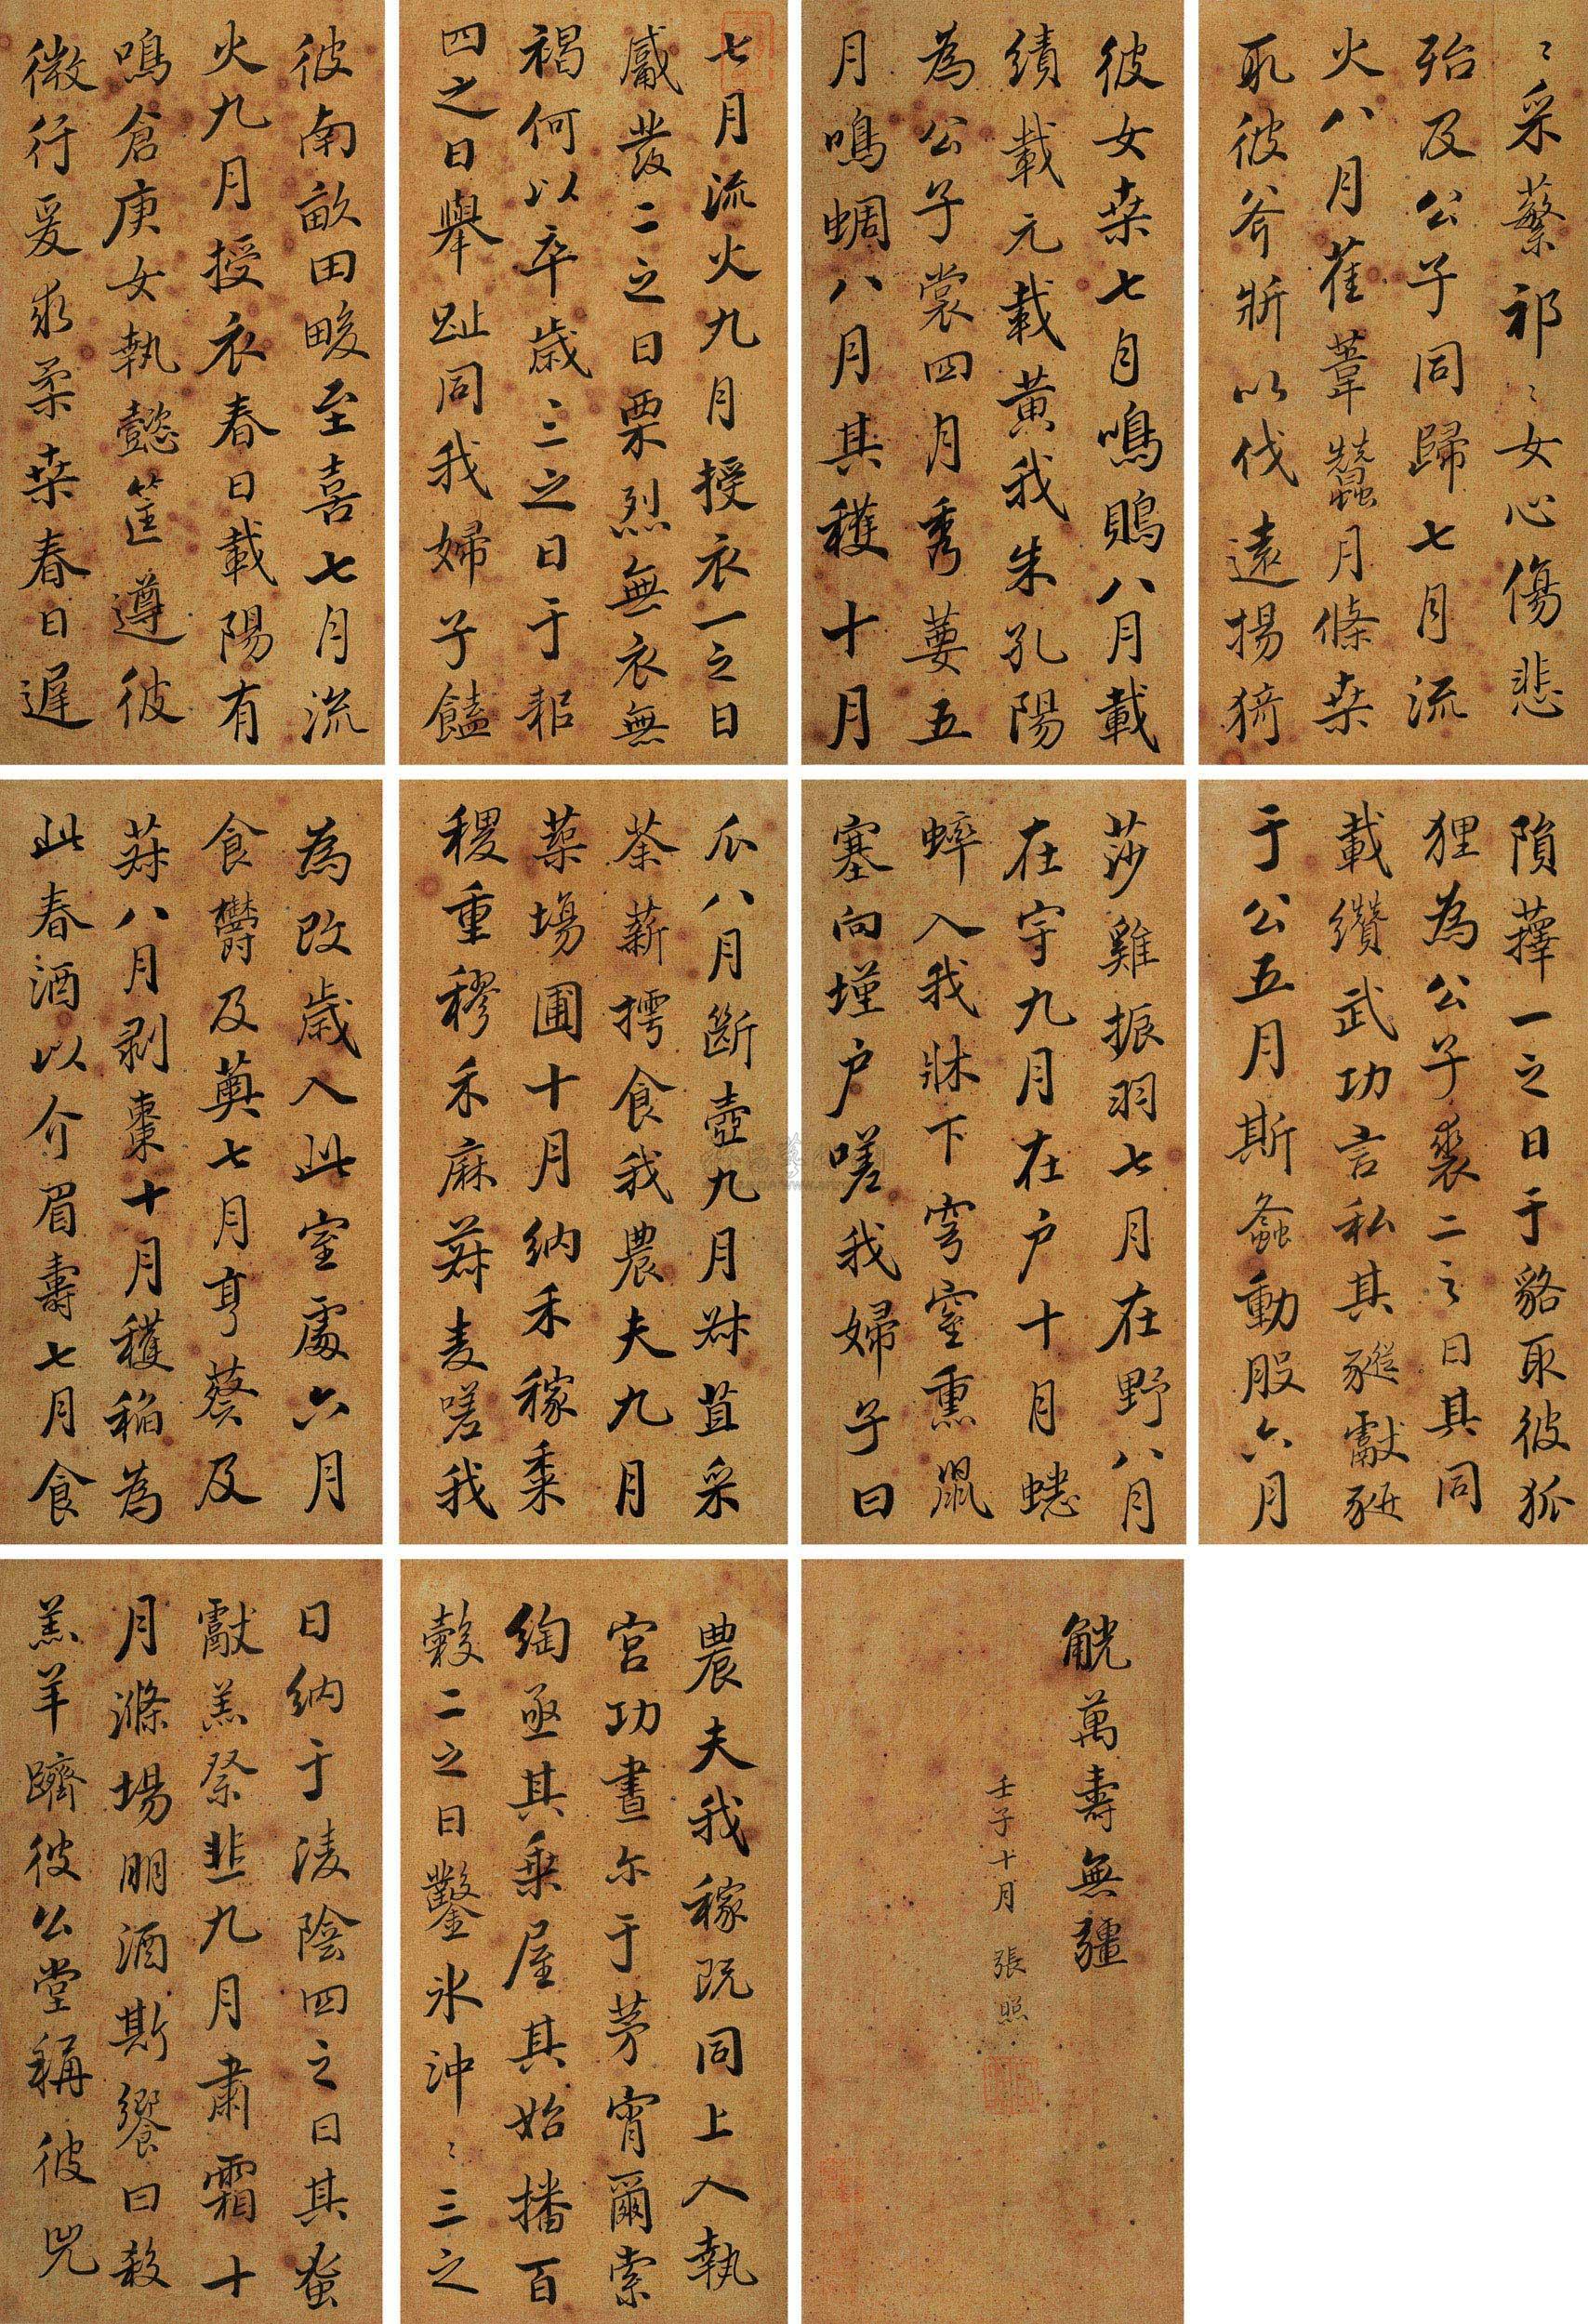 七月流火九月授衣一之日
觱發二之日栗烈無衣無
褐何以卒歲三之日于耜
四之日舉趾同我婦子饁
彼南畝田畯至喜七月流
火九月授衣春日載陽有
鳴倉庚女執懿筐遵彼
微行爰求柔桑春日遲
〻采蘩祁〻女心傷悲
殆及公子同歸七月流
火八月萑葦蠶月條桑
取彼斧斨以伐遠揚猗
彼女桑七月鳴鵙八月載
績載元載黃我朱孔陽
為公子裳四月秀葽五
月鳴蜩八月其穫十月
隕蘀一之日于貉取彼狐
狸為公子裘二之日其同
載纘武功言私其豵獻豜
于公五月斯螽動股六月
莎雞振羽七月在野八月
在宇九月在户十月蟋
蟀入我牀下穹窒熏鼠
塞向墐户嗟我婦子曰
為改歲入此室處六月
食鬱及薁七月亨葵及
菽八月剥棗十月穫稻為
此春酒以介眉壽七月食
瓜八月斷壺九月菽苴采
荼薪樗食我農夫九月
築場圃十月納禾稼黍
稷重穋禾麻菽麦嗟我
農夫我稼既同上入執
宮功晝尔于茅宵爾索
綯亟其乘屋其始播百
穀二之日鑿氷沖〻三之
日納于凌陰四之日其蚤
獻羔祭韭九月肅霜十
月滌場朋酒斯饗曰殺
羔羊躋彼公堂稱彼兕
觥萬壽無疆
壬子十月 張照